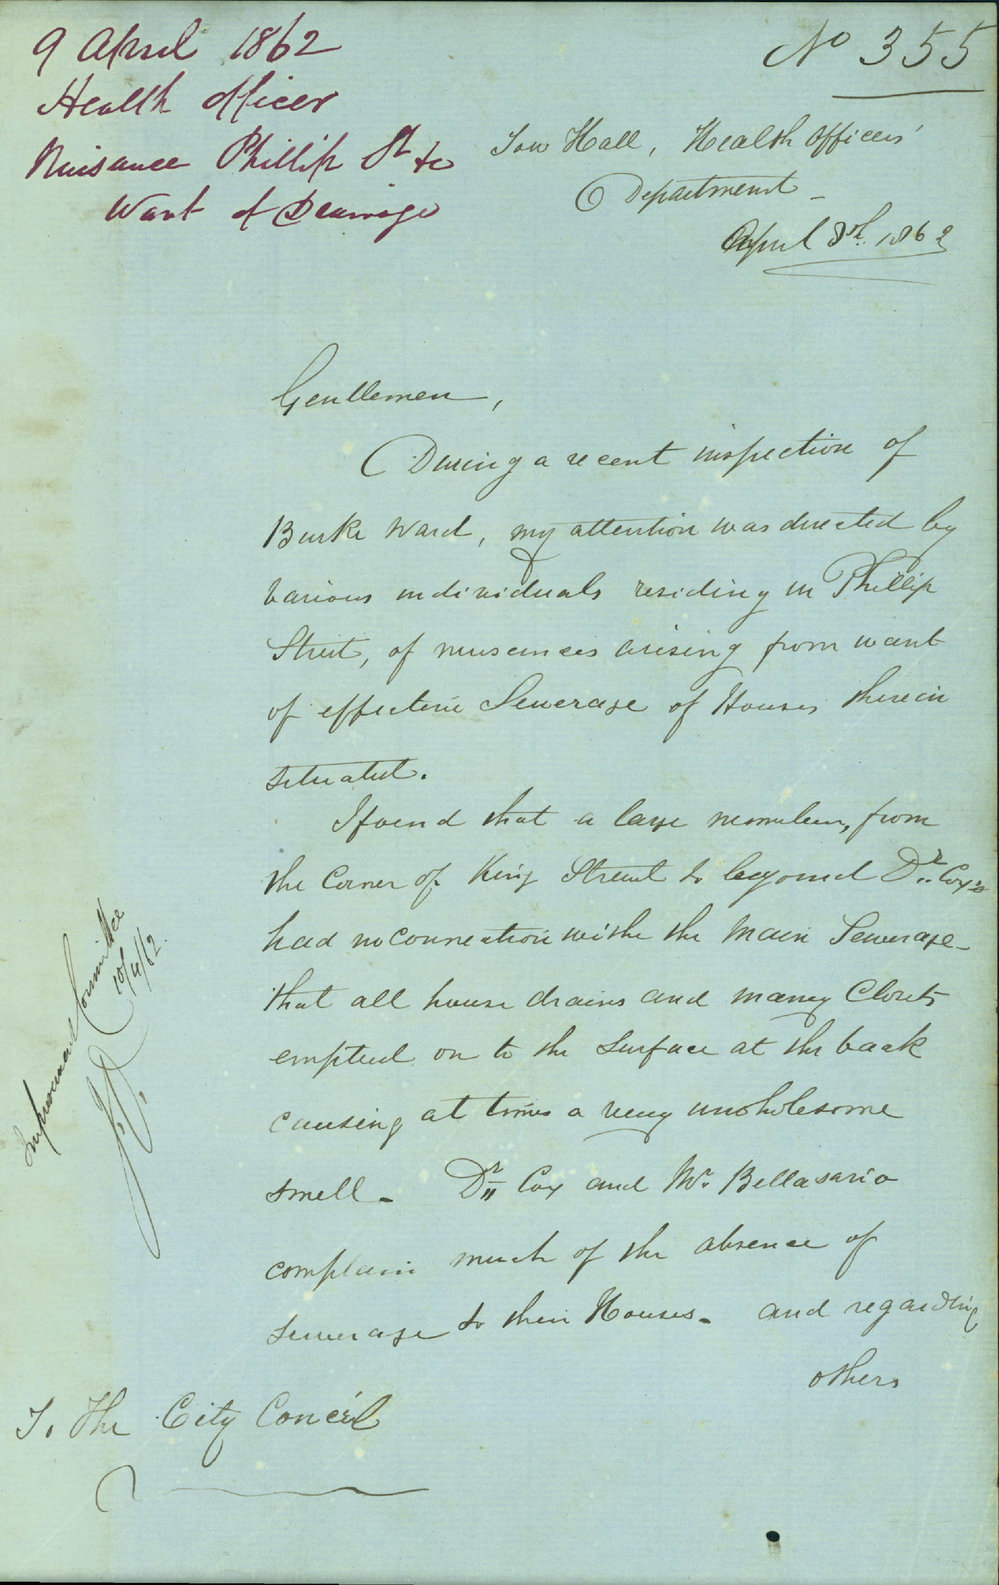 9 April 1862
Health Officer
Nuisance Phillip St &c
Want of Drainage
No 355
Tow Hall, Health Officers'
Department
April 8th. 1862
Gentlemen,
During a recent inspection of
Burke Ward, my attention was directed by
various individuals residing in Phillip
Street, of nuisances arising from want
of effective Sewerage of Houses therein
situated.
I found that a large number, from
the Corner of King Street to beyond Dr. Cox's
had no connection withe the Main Sewerage -
that all house drains and many Closets
emptied on to the surface at the back
causing at times a very unwholesome
smell - Dr Cox and Mr. Bellasario
complain much of the absence of
sewerage to their Houses - and regarding
others
To The City Concil
Improvement Committee
10/4/62.